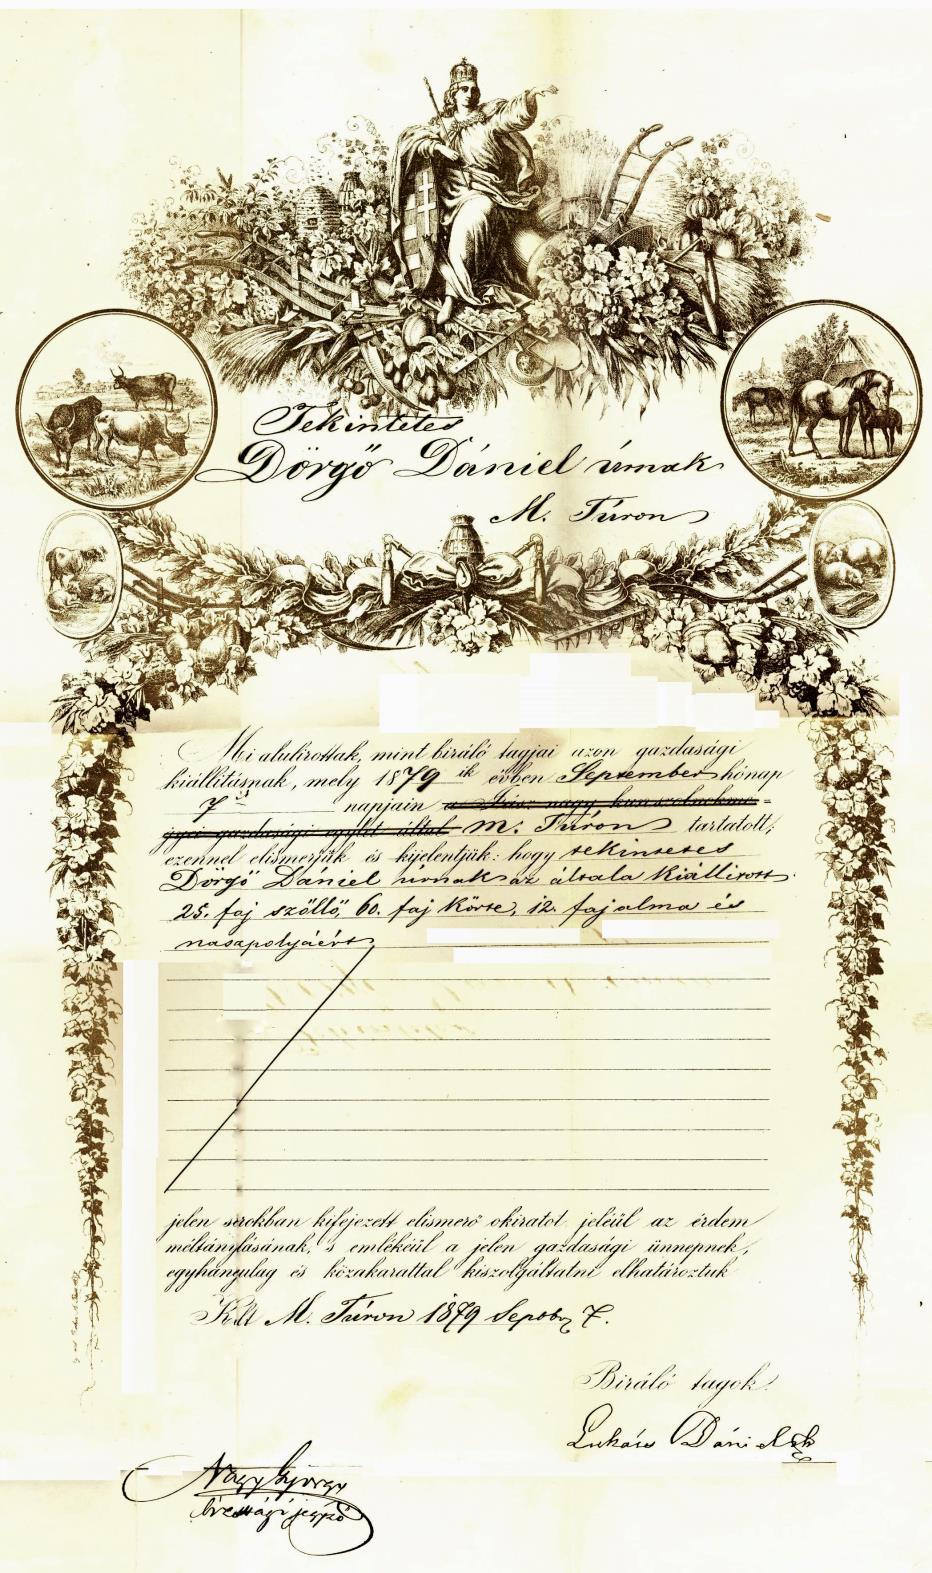 Tekintetes
Dörgő Dániel úrnak
M. Túron
Mi alulírottak, mint biráló tagjai azon gazdasági
kiállításnak, mely 1879 ik évben September hónap
7 napjain a Jász nagy kunszolnokme=
gyei gazdasági egylet által M. Túron tartatott,
ezennel elismerjük és kijelentjük: hogy tekintetes
Dörgő Dániel úrnak az általa kiállitott
25. faj szőllő, 60. faj körte, 12. faj alma és
naszpolyáért
jelen sorokban kifejezett elismerő okiratot jeléül az érdem
méltánylásának, s emlékéül a jelen gazdasági ünnepnek,
egyhangulag és közakarattal kiszolgáltatni elhatároztuk
Kelt M. Túron 1879 Septbr 7.
Biráló tagok.
Lukács Dániel
Nagy György
bizottsági jegyző